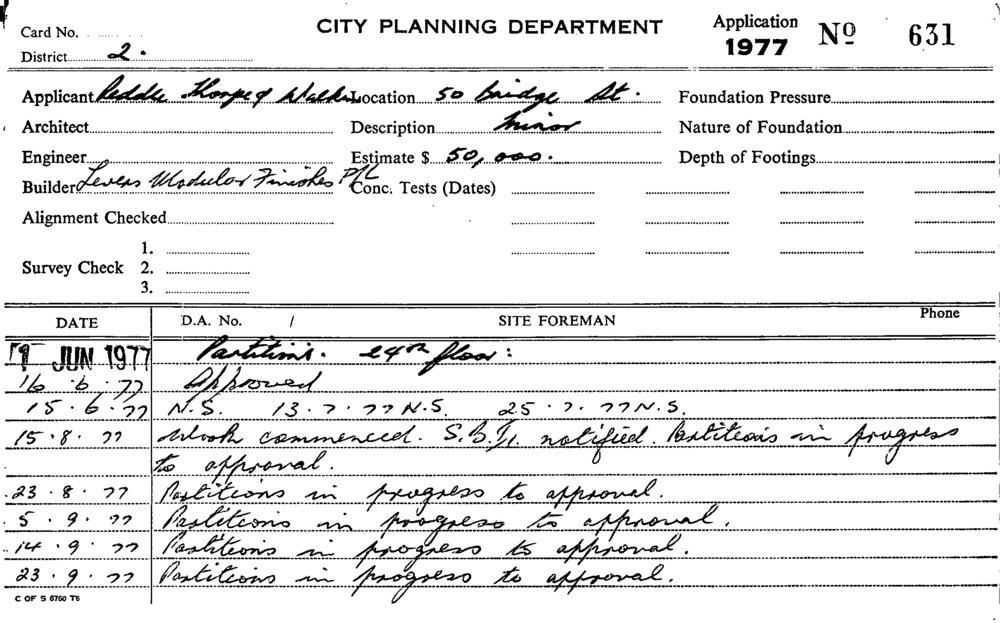 Card No.
CITY PLANNING DEPARTMENT
Application
1977
No 631
District 2.
Applicant Peddle Thorpe & Walker Location 50 Bridge St. Foundation Pressure
Architect Description Minor Nature of Foundation
Engineer Estimate $ 50,000. Depth of Footings
Builder Levers Modular Finishes P/L Conc. Tests (Dates)
Alignment Checked
1.
Survey Check 2.
3.
DATE D.A. No. / SITE FOREMAN Phone
1 JUN 1977 Partitions. 24th floor:
16.6.77 Approved
15.6.77 N.S. 13.7.77 N.S. 25.7.77 N.S.
15.8.77 Work commenced. notified. Partitions in progress
to approval.
23.8.77 Partitions in progress to approval.
5.9.77 Partitions in progress to approval.
14.9.77 Partitions in progress to approval.
23.9.77 Partitions in progress to approval.
C OF S 6760 T6